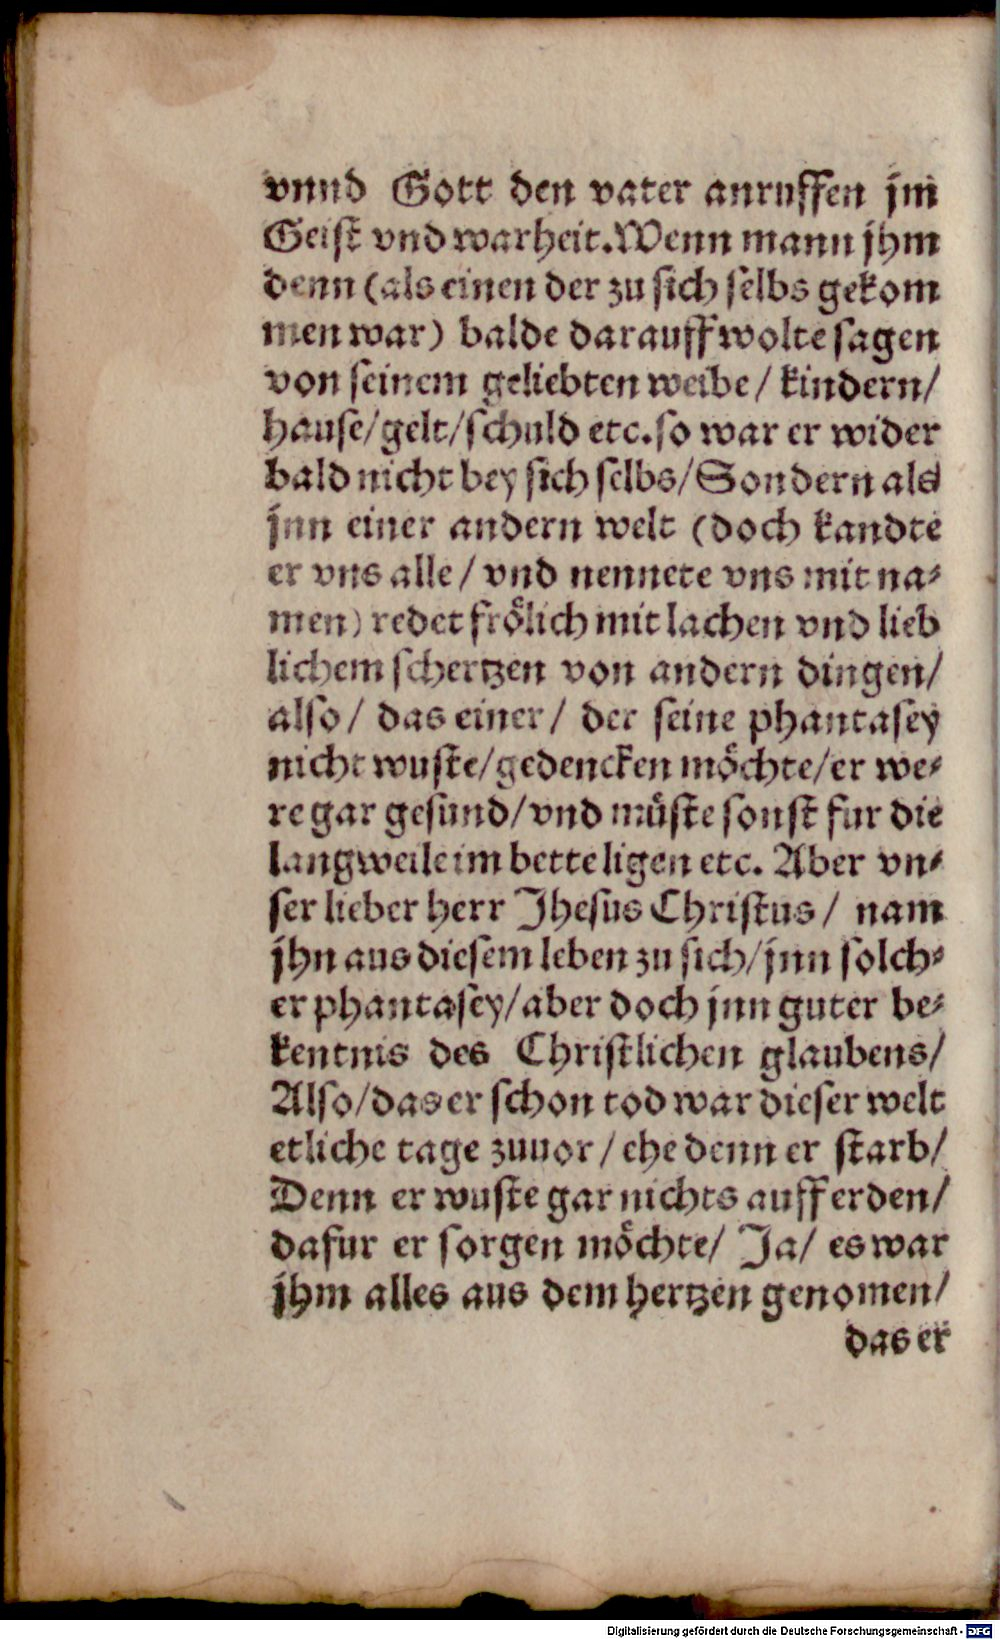 vnnd Gott den vater anruffen jm
Geist vnd warheit. Wenn mann jhm
denn (als einen der zu sich selbs gekom
men war) balde darauff wolte sagen
von seinem geliebten weibe / kindern /
hause / gelt / schuld etc. so war er wider
bald nicht bey sich selbs / Sondern als
jnn einer andern welt (doch kandte
er vns alle / vnd nennete vns mit na⸗
men) redet frölich mit lachen vnd lieb
lichem schertzen von andern dingen /
also / das einer / der seine phantasey
nicht wuste / gedencken möchte / er we⸗
re gar gesund / vnd müste sonst fur die
langweile im bette ligen etc. Aber vn⸗
ser lieber herr Jhesus Christus / nam
jhn aus diesem leben zu sich / jnn solch⸗
er phantasey / aber doch jnn guter be⸗
kentnis des Christlichen glaubens /
Also / das er schon tod war dieser welt
etliche tage zuuor / ehe denn er starb /
Denn er wuste gar nichts auff erden /
dafur er sorgen möchte / Ja / es war
jhm alles aus dem hertzen genomen /
das er
Digitalisierung gefördert durch die Deutsche Forschungsgemeinschaft - DFG